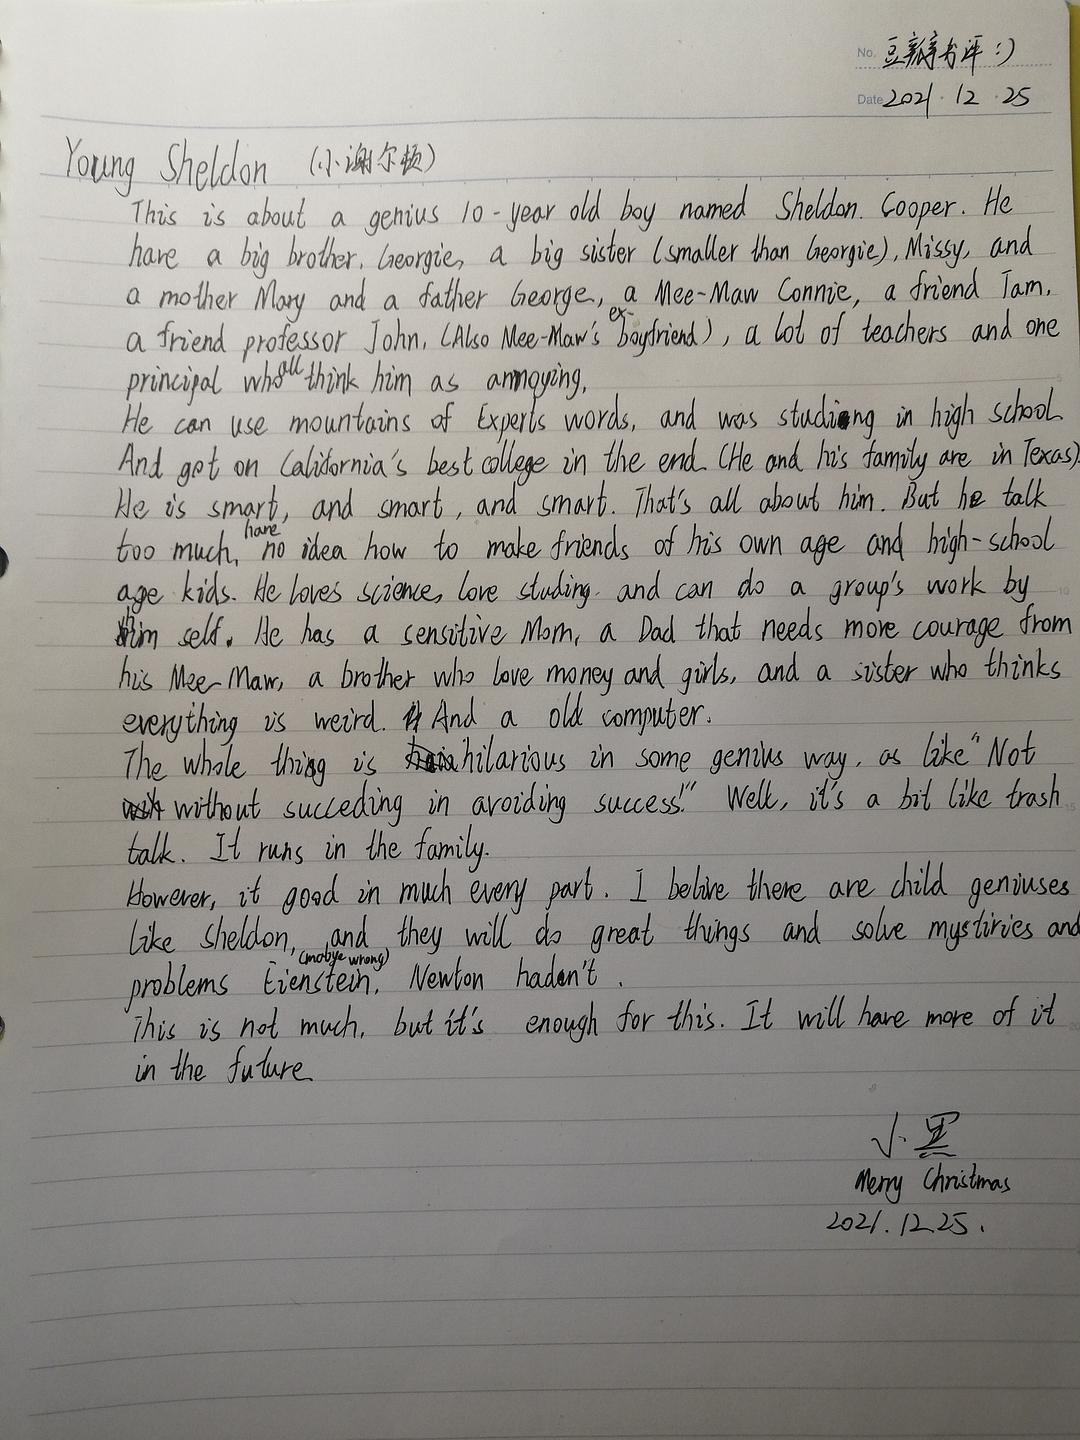 No. 豆瓣书评 :)
Date 2021 · 12 · 25
Young Sheldon (小谢尔顿)
This is about a genius 10-year old boy named Sheldon. Cooper. He
have a big brother, Georgie, a big sister (smaller than Georgie), Missy, and
a mother Mary and a father George, a Mee-Maw Connie, a friend Tam,
a friend professor John, (Also Mee-Maw's ex-boyfriend), a lot of teachers and one
principal who all think him as annoying,
He can use mountains of Experts words, and was studing in high school
And got on California's best college in the end (He and his family are in Texas).
He is smart, and smart, and smart. That's all about him. But he talk
too much, have no idea how to make friends of his own age and high-school
age kids. He loves science, love studing and can do a group's work by
him self. He has a sensitive Mom, a Dad that needs more courage from
his Mee-Maw, a brother who love money and girls, and a sister who thinks
everything is weird. And a old computer.
The whole thing is hilarious in some genius way, as like "Not
without succeding in avoiding success!" Well, it's a bit like trash
talk. It runs in the family.
However, it good in much every part. I belive there are child geniuses
like Sheldon, and they will do great things and solve mystiries and
problems Eienstein, (mabye wrong) Newton hadn't.
This is not much, but it's enough for this. It will have more of it
in the future
小黑
Merry Christmas
2021.12.25.